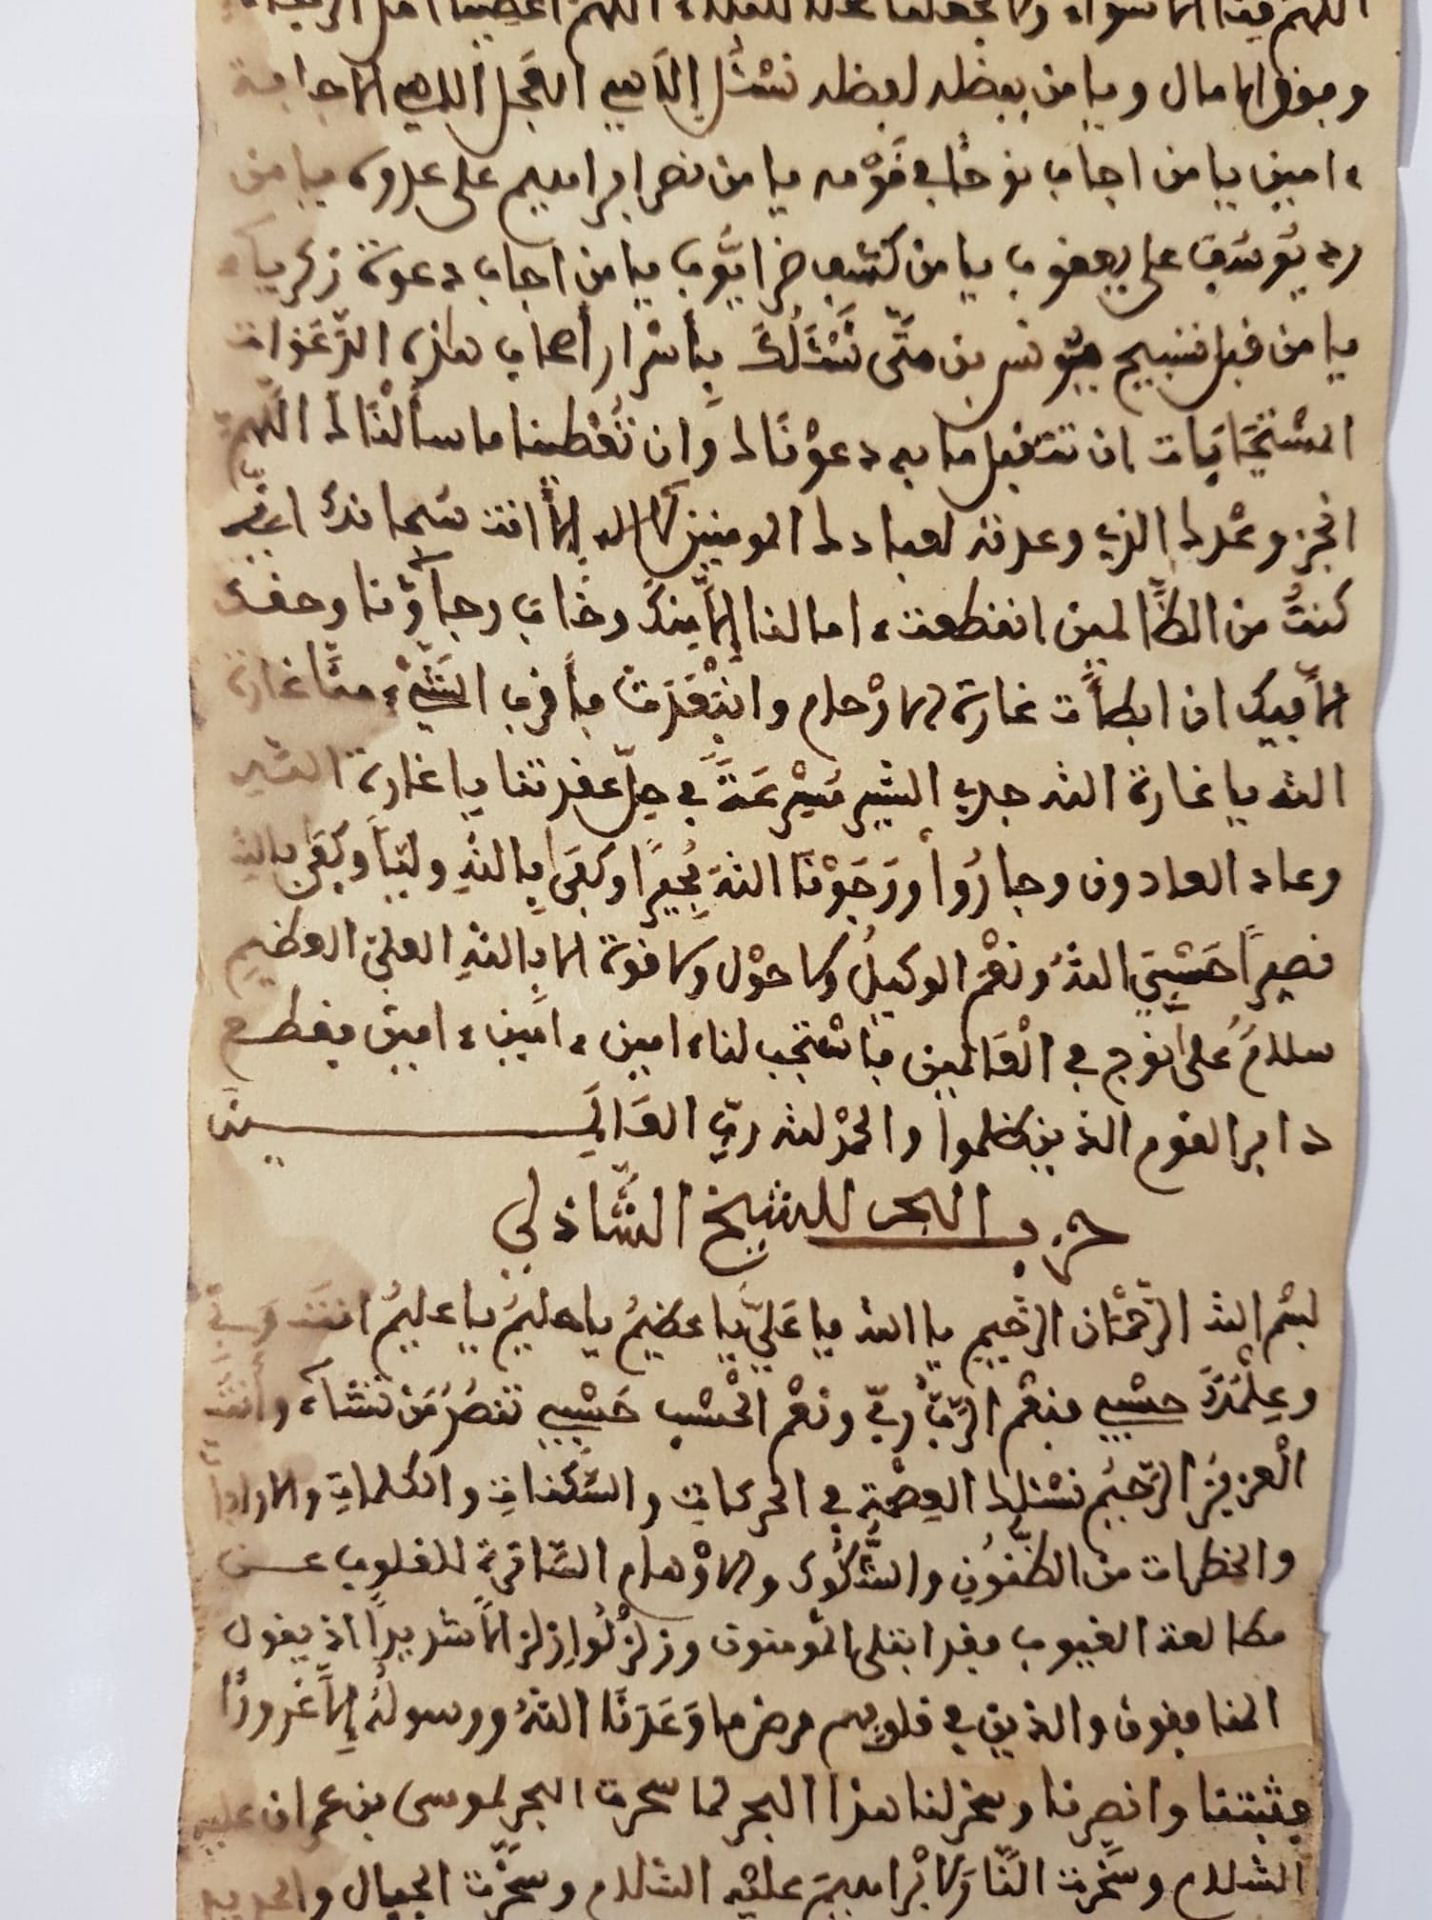 اللهم قنا الاسواء ولا تجعلنا محلا للبلاء اللهم اعطنا امل الرجاء
وفوق الامال ويا من بفضله لفضله نسئل الاهي العجل العجل الاهي الاجابة
امين يا من اجاب نوحا في قومه يا من نصر ابراهيم على عدوه يا من
رد يوسف على يعقوب يا من كشف ضر ايوب يا من اجاب دعوة زكرياء
يا من قبل تسبيح يونس بن متى نسئلك بأسرار أصحاب هاذه الدعوات
المستجابات ان تتقبل ما به دعوناك وان تعطينا ما سألناك اللهم
انجز وعدك الذي وعدته لعبادك المومنين لا اله الا انت سبحانك اني
كنت من الظالمين انقطعت امالنا إلا منك وخاب رجاؤنا وحقك
الا فيك ان ابطأت غارة الارحام وابتعدت فأقرب الشيء منا غارة
الله يا غارة الله جدي السير مسرعة في حل عقدتنا يا غارة الله
وعاد العادون وجاروا ورجونا الله مجيرا وكفى بالله وليا وكفى بالله
نصيرا حسبي الله ونعم الوكيل ولا حول ولا قوة الا بالله العلي العظيم
سلام على نوح في العالمين فاستجب لنا امين امين امين فقطع
دابر القوم الذين ظلموا والحمد لله رب العالمين
حزب البحر للشيخ الشاذلي
بسم الله الرحمان الرحيم يا الله يا علي يا عظيم يا حليم يا عليم انت ربي
وعلمك حسبي فنعم الرب ربي ونعم الحسب حسبي تنصر من تشاء وأنت
العزيز الرحيم نسئلك العصمة في الحركات والسكنات والكلمات والارادات
والخطرات من الظنون والشكوك والاوهام الساترة للقلوب عن
مطالعة الغيوب فقد ابتلي المومنون وزلزلوا زلزالا شديدا اذ يقول
المنافقون والذين في قلوبهم مرض ما وعدنا الله ورسوله إلا غرورا
فثبتنا وانصرنا وسخر لنا هذا البحر كما سخرت البحر لموسى بن عمران عليه
السلام وسخرت النار لابراهيم عليه السلام وسخرت الجبال والحديد